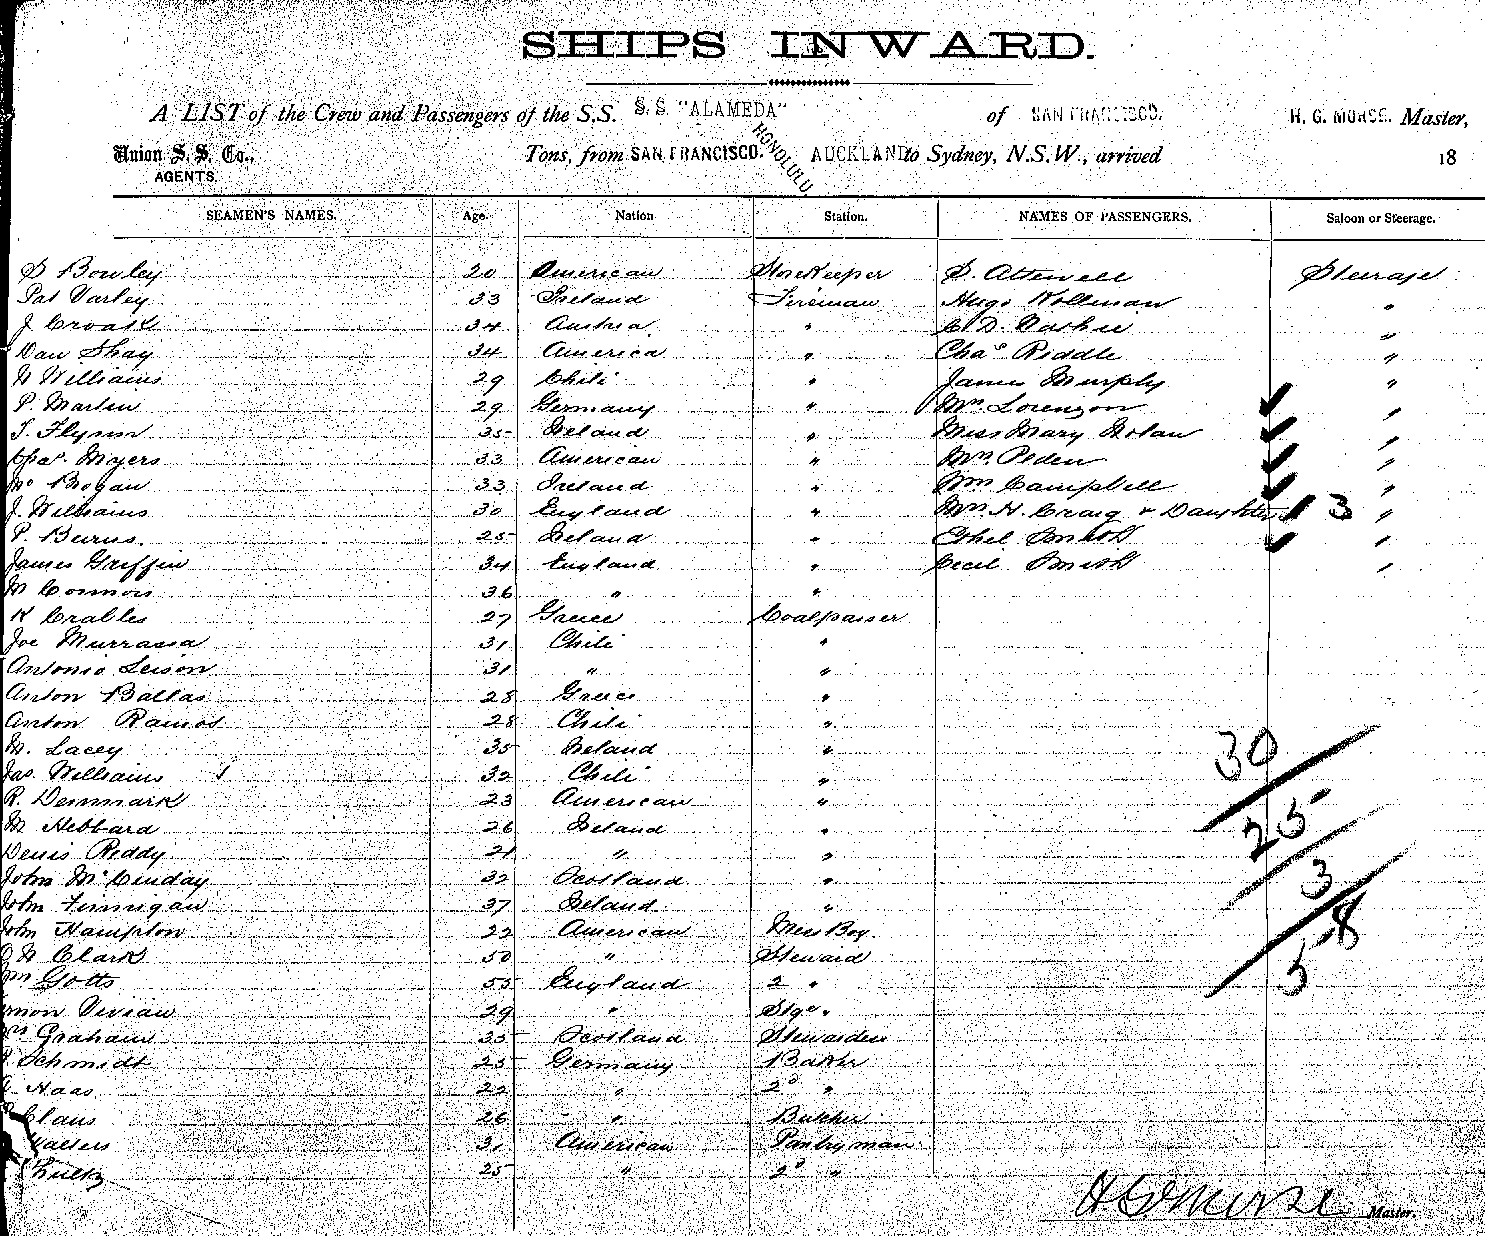 SHIPS INWARD.
A LIST of the Crew and Passengers of the S.S. S.S. "ALAMEDA" of SAN FRANCISCO. H. G. MORSE. Master,
Union S. S. Co., Tons, from SAN FRANCISCO. HONOLULU AUCKLAND to Sydney, N.S.W., arrived 18
AGENTS.
SEAMEN'S NAMES. Age. Nation Station. NAMES OF PASSENGERS. Saloon or Steerage.
S Bowley 20 American Storekeeper S. Attewell Steerage
Pat Varley 33 Ireland Fireman Hugo Kollman "
J. 34 Austria " C. D. "
Dan Shay 34 America " Chas Riddle "
Williams 29 Chili " James Murphy "
P. Martin 29 Germany " Mrs. Lorenzon "
T. Flynn 35 Ireland " Miss Mary Nolan "
Chas. Myers 33 American " Mrs. Peden "
Brogan 33 Ireland " Wm Campbell "
J. Williams 30 England " Mrs. H. Craig & Daughter 3 "
P. Burns. 25 Ireland " Ethel Smith "
James Griffin 34 England " Cecil Smith "
M Connors 36 " "
K Crables 27 Greece Coalpasser
Joe 31 Chili "
Antonio Leison 31 " "
Anton Ballas 28 Greece "
Anton Ramos 28 Chili "
M. Lacey 35 Ireland "
Jas. Williams 32 Chili "
R. Denmark 23 American "
M Hebbard 26 Ireland "
Denis Reddy 21 " "
John 32 Scotland "
John Finnigan 37 Ireland "
John Hampton 22 American Mess Boy.
Clark 50 " Steward
Gotts 55 England 2 "
Vivian 29 " Stge "
Graham 35 Scotland Stewardess
Schmidt 25 Germany Baker
Haas 22 " 2d "
Claus 26 " Butcher
Walters 31 American Pantryman
25 " 2d "
30
25
3
58
H G Morse Master.